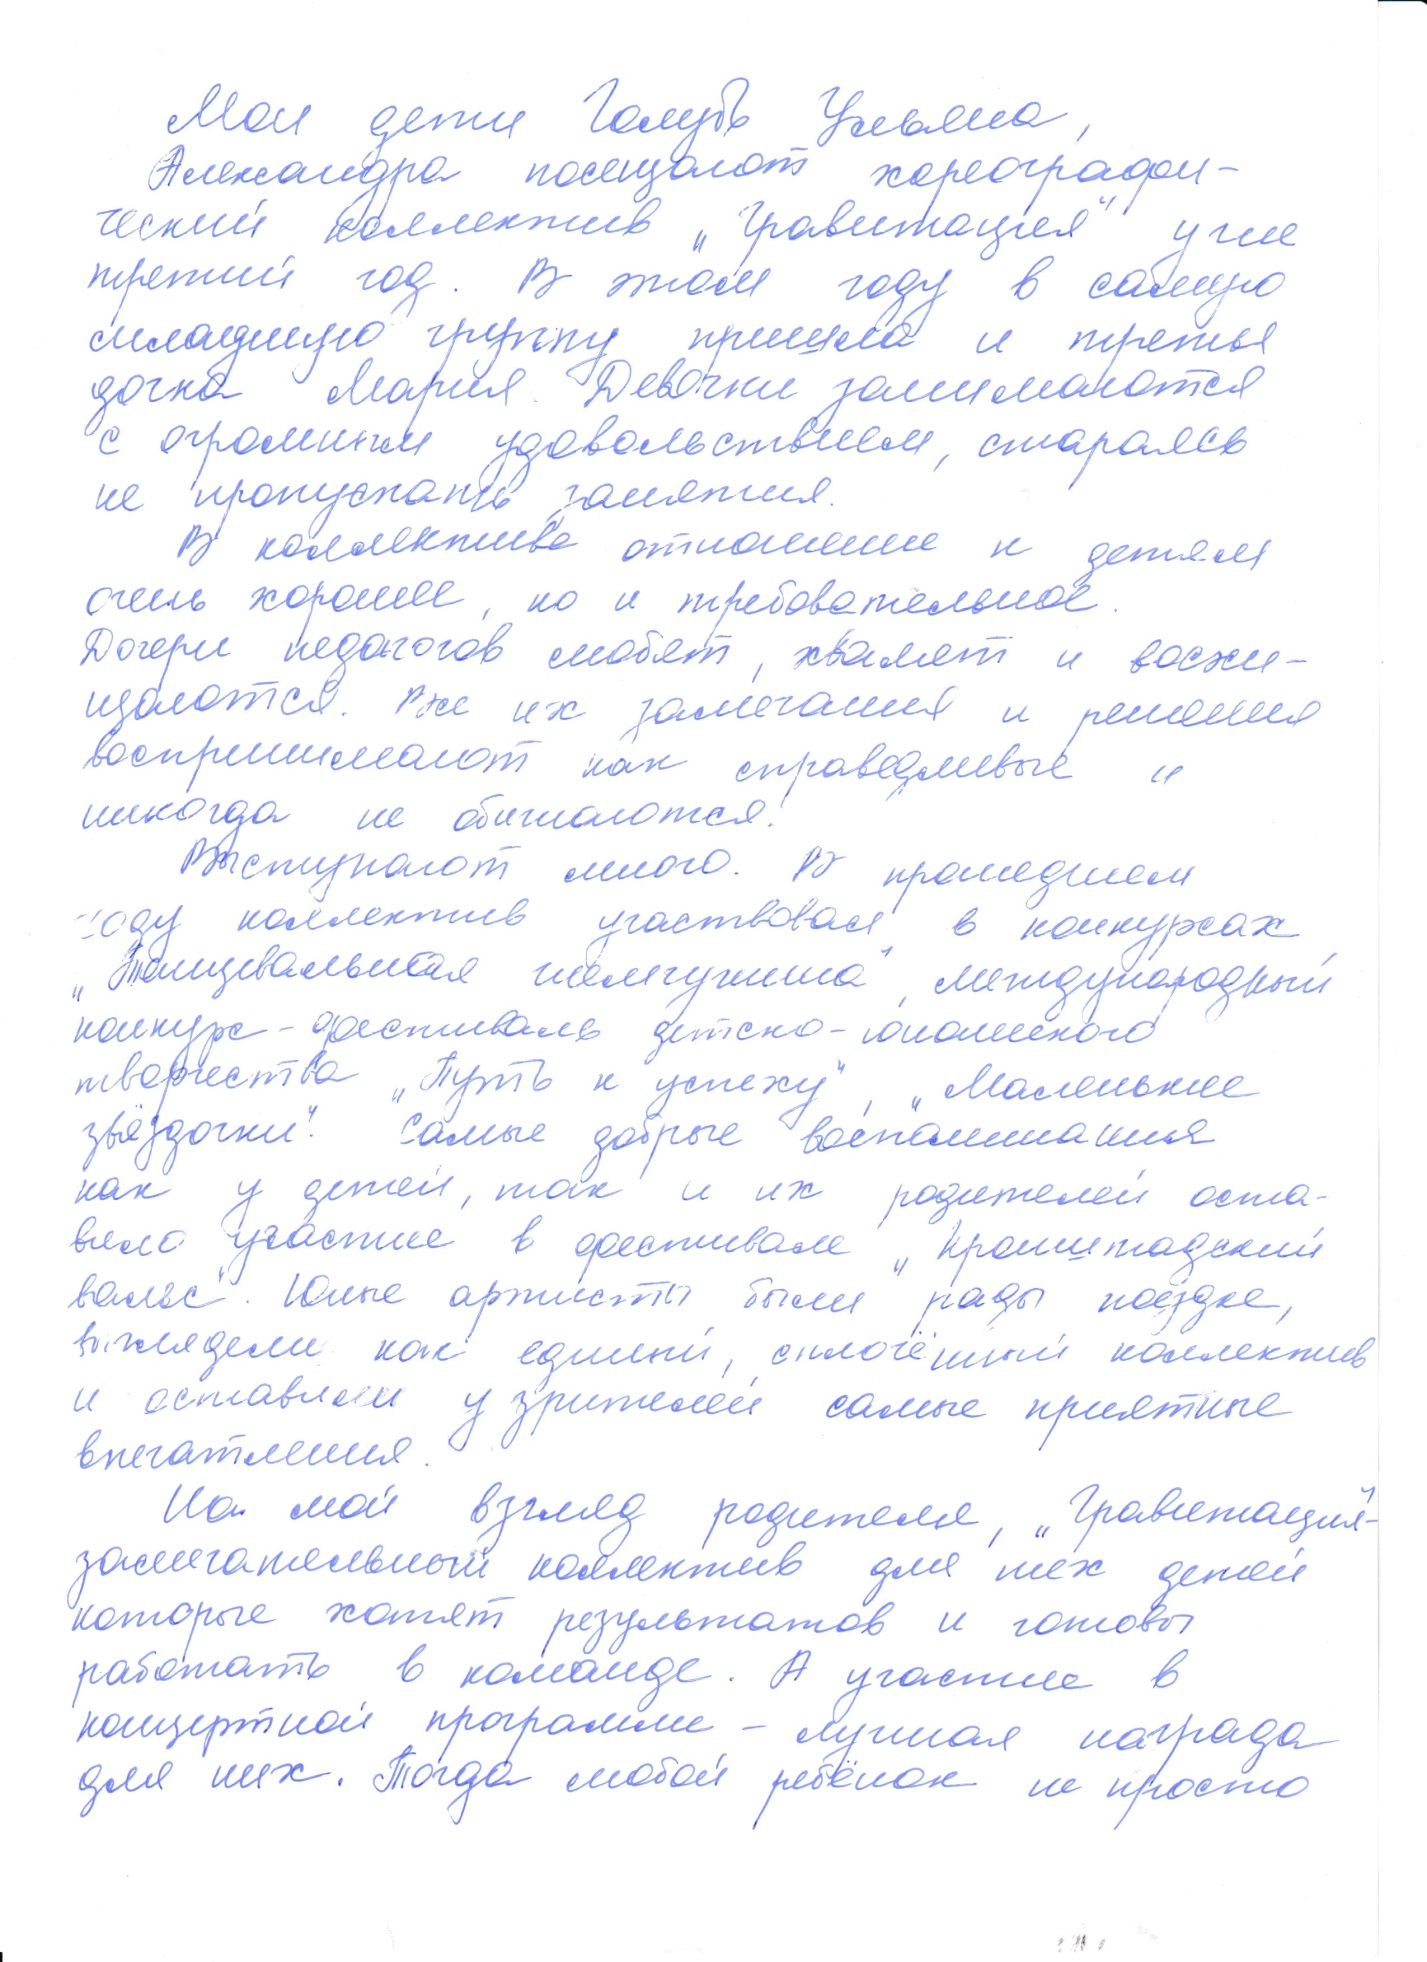 Мои дети Голубь Ульяна,
Александра посещают хореографи-
ческий коллектив „Гравитация" уже
третий год. В этом году в самую
младшую группу пришла и третья
дочка Мария. Девочки занимаются
с огромным удовольствием, стараясь
не пропускать занятия.
В коллективе отношение к детям
очень хорошее, но и требовательное.
Дочери педагогов любят, хвалят и восхи-
щаются. Все их замечания и решения
воспринимают как справедливые и
никогда не обижаются.
Выступают много. В прошедшем
году коллектив участвовал в конкурсах
„Танцевальная жемчужина", международный
конкурс-фестиваль детско-юношеского
творчества „Путь к успеху", „Маленькие
звёздочки". Самые добрые воспоминания
как у детей, так и их родителей оста-
вило участие в фестивале „Кронштадский
вальс". Юные артисты были рады поездке,
выглядели как единый, сплочённый коллектив
и оставили у зрителей самые приятные
впечатления.
На мой взгляд родителя, „Гравитация"-
замечательный коллектив для тех детей
которые хотят результатов и готовы
работать в команде. А участие в
концертной программе – лучшая награда
для них. Тогда любой ребёнок не просто